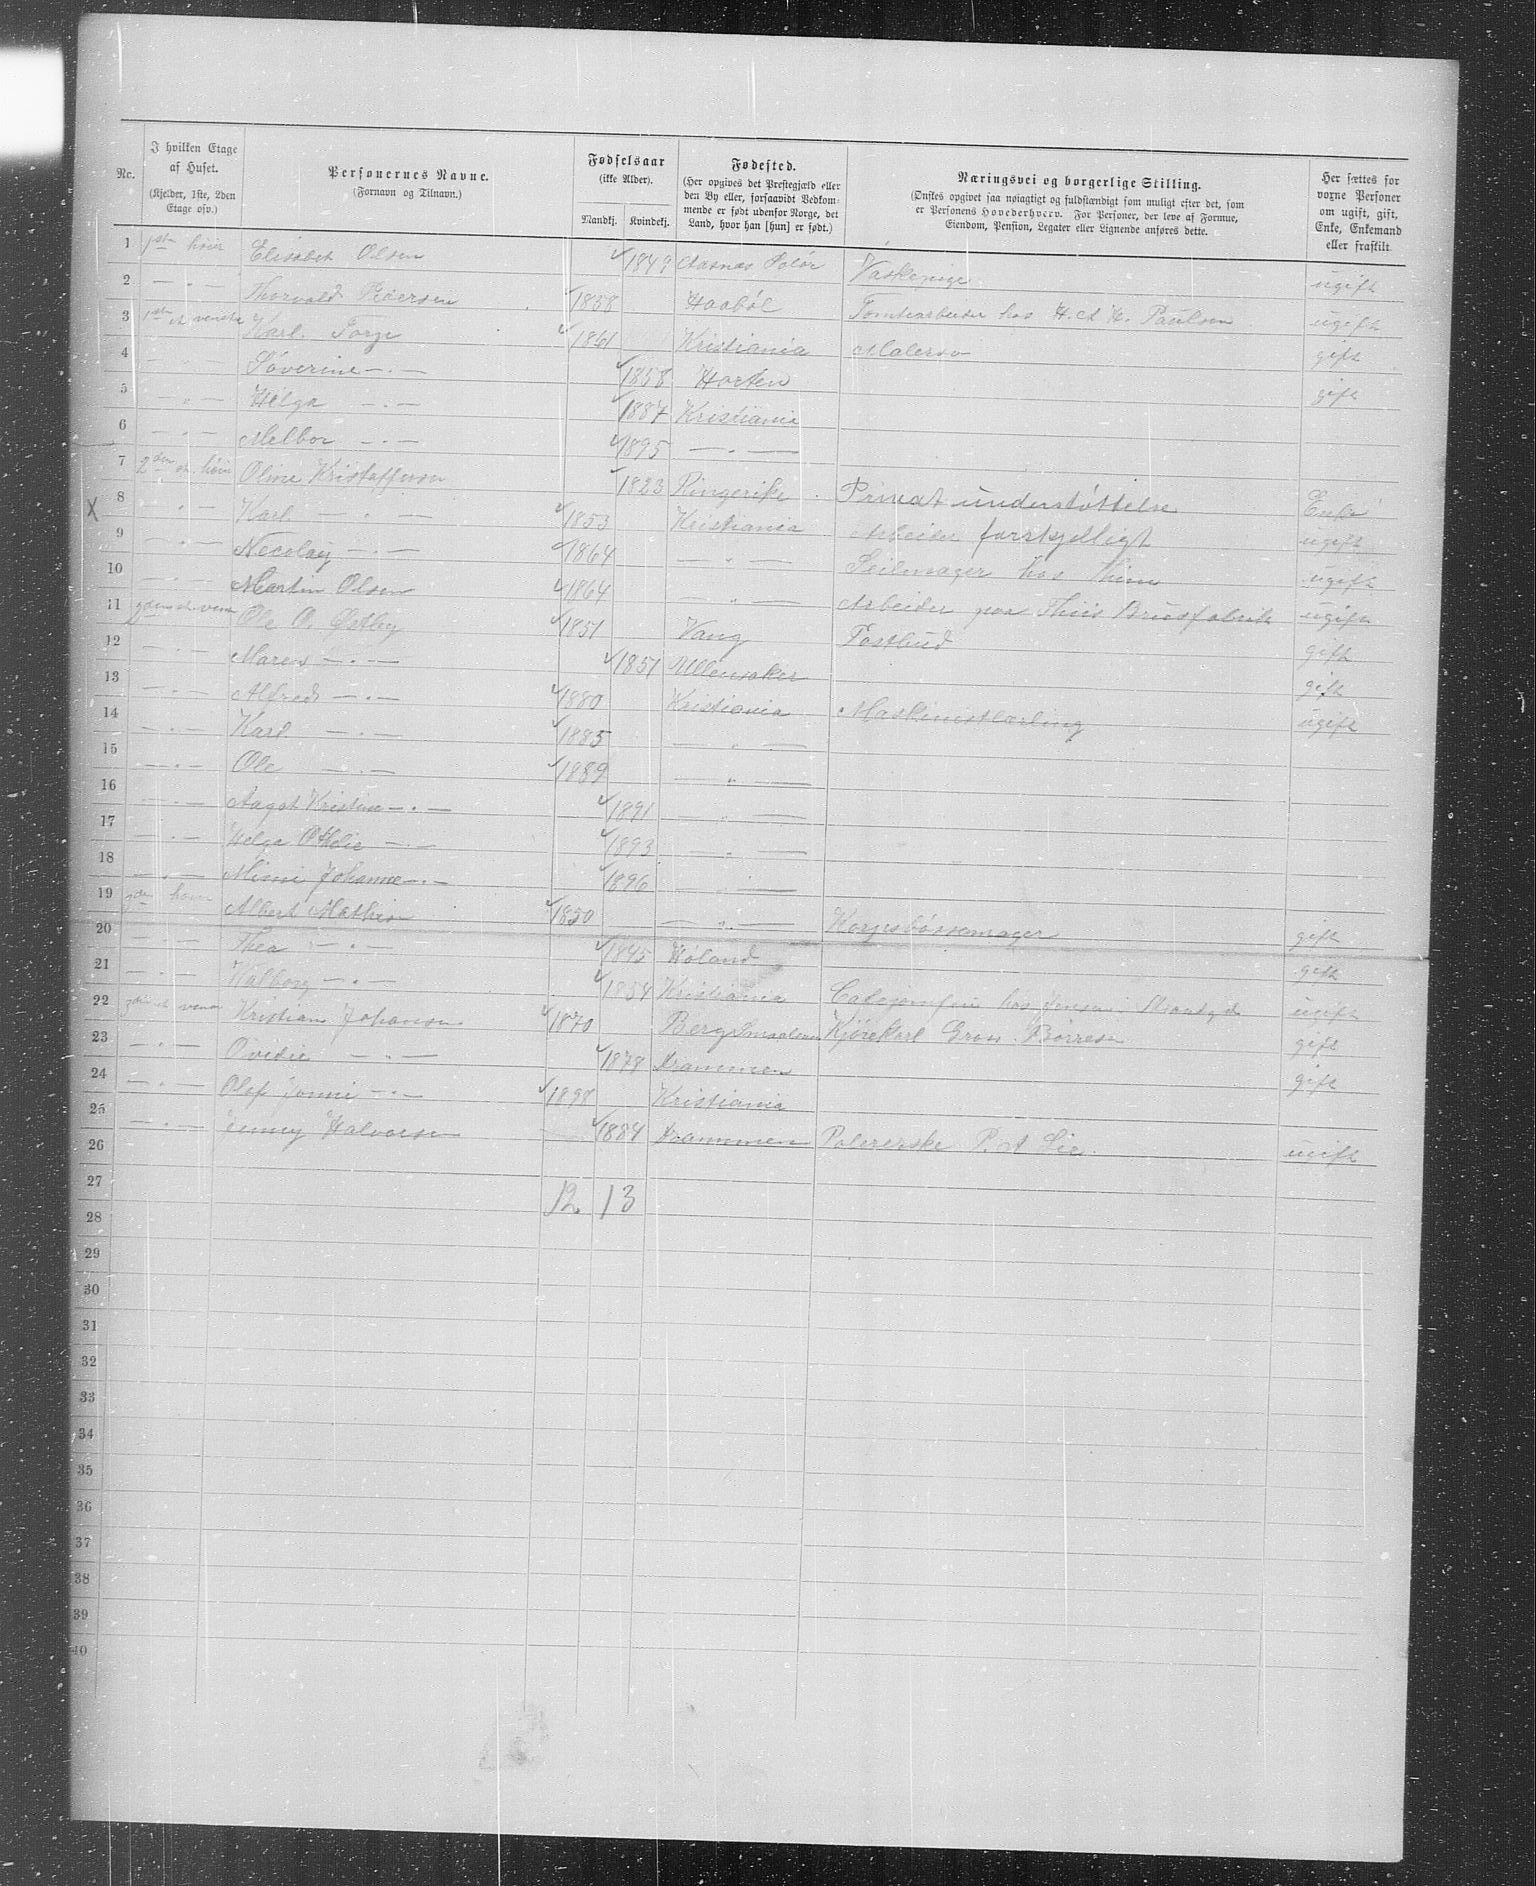 Nr.
I hvilken Etage af Huset.
(Kjelder, 1ste, 2den Etage osv.)
Personernes Navne.
(Fornavn og Tilnavn.)
Fødselsaar
(ikke Alder).
Mandkj. Kvindekj.
Fødested.
(Her opgives det Prestegjæld eller
den By eller, forsaavidt Vedkom-
mende er født udenfor Norge, det
Land, hvor han [hun] er født.)
Næringsvei og borgerlige Stilling.
(Ønskes opgivet saa nøiagtigt og fuldstændigt som muligt efter det, som
er Personens Hovederhverv. For Personer, der leve af Formue,
Eiendom, Pension, Legater eller Lignende anføres dette.
Her sættes for
voxne Personer
om ugift, gift,
Enke, Enkemand
eller fraskilt
1 1ste høire Elisabet Olsen 1849 Aasnæs Solør Vaskepige ugift
2 — " — Thorvald Pedersen 1858 Haabøl Tomtearbeider hos H. A. H. Paulsen ugift
3 1ste et venstre Karl Torge 1861 Kristiania Malersv gift
4 — " — Søverine — " — 1858 Horten gift
5 — " — Helga — " — 1887 Kristiania
6 — " — Melbor — " — 1895 — " —
7 2den et. høire Oline Kristoffersen 1823 Ringerike Privat understøttelse Enke
8 — " — Karl — " — 1853 Kristiania Arbeider forskjelligt ugift
9 — " — Necolay — " — 1864 — " — Seilmager hos ugift
10 — " — Martin Olsen 1864 — " — Arbeider paa Brusfabrik ugift
11 2den et venst Ole O. Østby 1851 Vang Postbud gift
12 — " — Maren — " — 1851 Ullensaker gift
13 — " — Alfred — " — 1880 Kristiania Maskinistlærling ugift
14 — " — Karl — " — 1885 — " —
15 — " — Ole — " — 1889 — " —
16 — " — Aagot Kristine — " — 1891 — " —
17 — " — Helga Othelie — " — 1893 — " —
18 — " — Mimi Johanne — " — 1896 — " —
19 3die høire Albert Mathisen 1850 — " — Korpsbøssemager gift
20 — " — Thea — " — 1845 Høland gift
21 — " — Valborg — " — 1854 Kristiania Cafejomfru hos Jensen ugift
22 3die et venst Kristian Johansen 1870 Berg Smaalenene Kjørekarl Gros. Børresen gift
23 — " — Ovidie — " — 1878 Drammen gift
24 — " — Olef Jonni — " — 1898 Kristiania
25 — " — Jenny Halvorsen 1884 Drammen Polererske P. A. Lie ugift
26
27 12 13
28
29
30
31
32
33
34
35
36
37
38
39
40
X